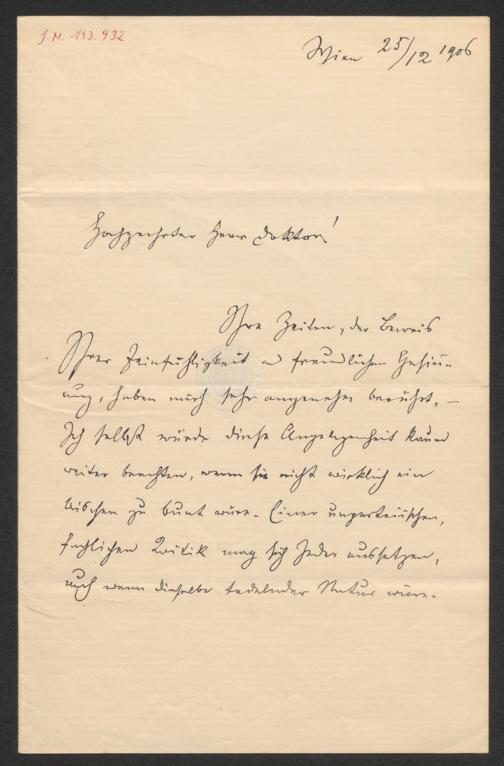 J.N. 193.932
Wien 25/12 1906
Hochgeehrter Herr Doktor!
Ihre Zeilen, der Beweis
Ihrer Feinfühligkeit u freundlichen Gesin-
nung, haben mich sehr angenehm berührt. –
Ich selbst würde diese Angelegenheit kaum
weiter beachten, wenn sie nicht wirklich ein
bischen zu bunt wäre. Einer unparteiischen,
fachlichen Kritik mag sich Jeder aussetzen,
auch wenn dieselbe tadelnder Natur wäre.